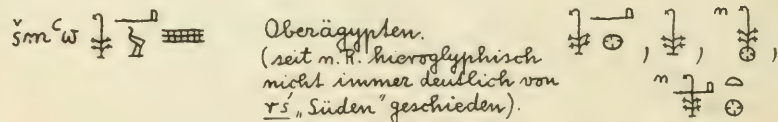 šmꜥw 𓇗𓂝𓃀𓈈 Oberägypten.
(seit n. R. hieroglyphisch
nicht immer deutlich von
rś „Süden“ geschieden).
n
n